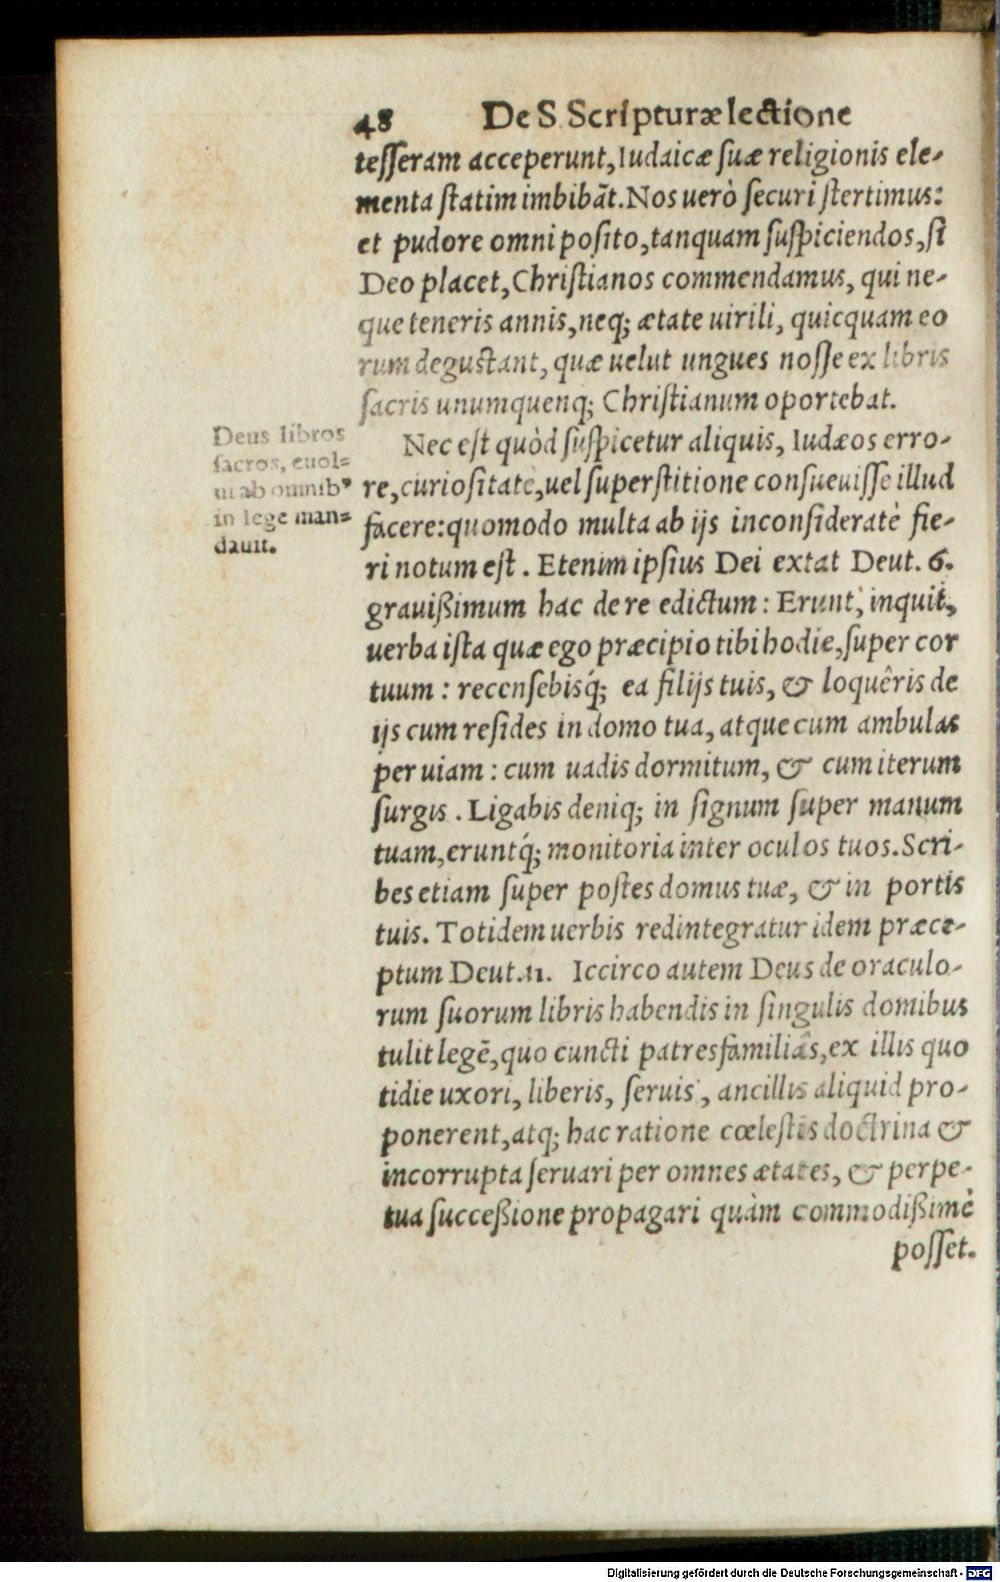 48 De S Scripturæ lectione
tesseram acceperunt, Iudaicæ suæ religionis ele-
menta statim imbibāt. Nos uerò securi stertimus:
et pudore omni posito, tanquam suspiciendos, si
Deo placet, Christianos commendamus, qui ne-
que teneris annis, neq; ætate uirili, quicquam eo
rum degustant, quæ uelut ungues nosse ex libris
sacris unumquenq; Christianum oportebat.
Nec est quòd suspicetur aliquis, Iudæos erro-
re, curiositate, uel superstitione consueuisse illud
facere: quomodo multa ab ijs inconsideratè fie-
ri notum est. Etenim ipsius Dei extat Deut. 6.
grauißimum hac de re edictum: Erunt, inquit,
uerba ista quæ ego præcipio tibi hodie, super cor
tuum: recensebisq́; ea filijs tuis, & loquêris de
ijs cum resides in domo tua, atque cum ambulas
per uiam: cum uadis dormitum, & cum iterum
surgis. Ligabis deniq; in signum super manum
tuam, eruntq́; monitoria inter oculos tuos. Scri-
bes etiam super postes domus tuæ, & in portis
tuis. Totidem uerbis redintegratur idem præce-
ptum Deut. 11. Iccirco autem Deus de oraculo-
rum suorum libris habendis in singulis domibus
tulit legē, quo cuncti patresfamiliâs, ex illis quo
tidie uxori, liberis, seruis, ancillis aliquid pro-
ponerent, atq; hac ratione cœlestis doctrina &
incorrupta seruari per omnes ætates, & perpe-
tua succeßione propagari quàm commodißimè
posset.
Deus libros
sacros, euol=
ui ab omnibꝰ
in lege man=
dauit.
Digitalisierung gefördert durch die Deutsche Forschungsgemeinschaft - DFG